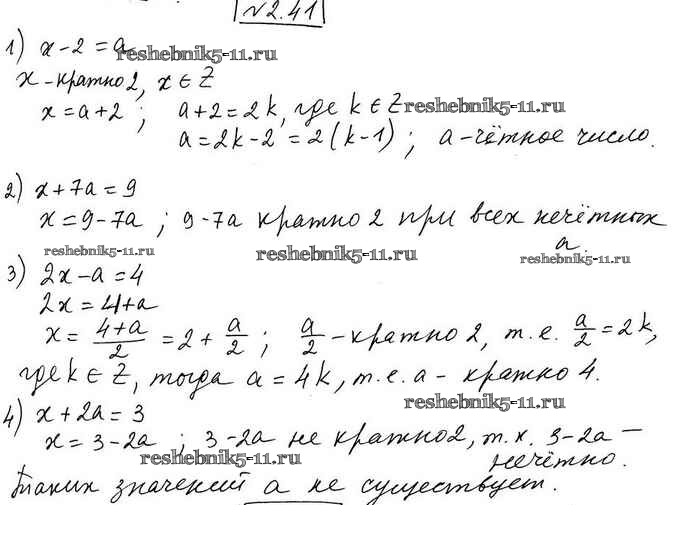 №2.41
1) x-2=a
reshebnik5-11.ru
x-кратно 2, x∈Z
x=a+2; a+2=2k, где k∈Z reshebnik5-11.ru
a=2k-2=2(k-1); a-чётное число.
2) x+7a=9
x=9-7a; 9-7a кратно 2 при всех нечётных
a.
reshebnik5-11.ru reshebnik5-11.ru reshebnik5-11.ru
3) 2x-a=4
2x=4+a
x=(4+a)/2=2+a/2; a/2-кратно 2, т.е. a/2=2k,
где k∈Z, тогда a=4k, т.е. a-кратно 4.
reshebnik5-11.ru
4) x+2a=3
x=3-2a; 3-2a не кратно 2, т.к. 3-2a —
reshebnik5-11.ru нечётно.
Таких значений a не существует.